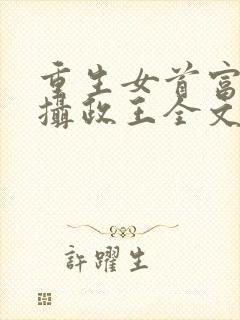 重生女首富
攝政王全文
許躍生